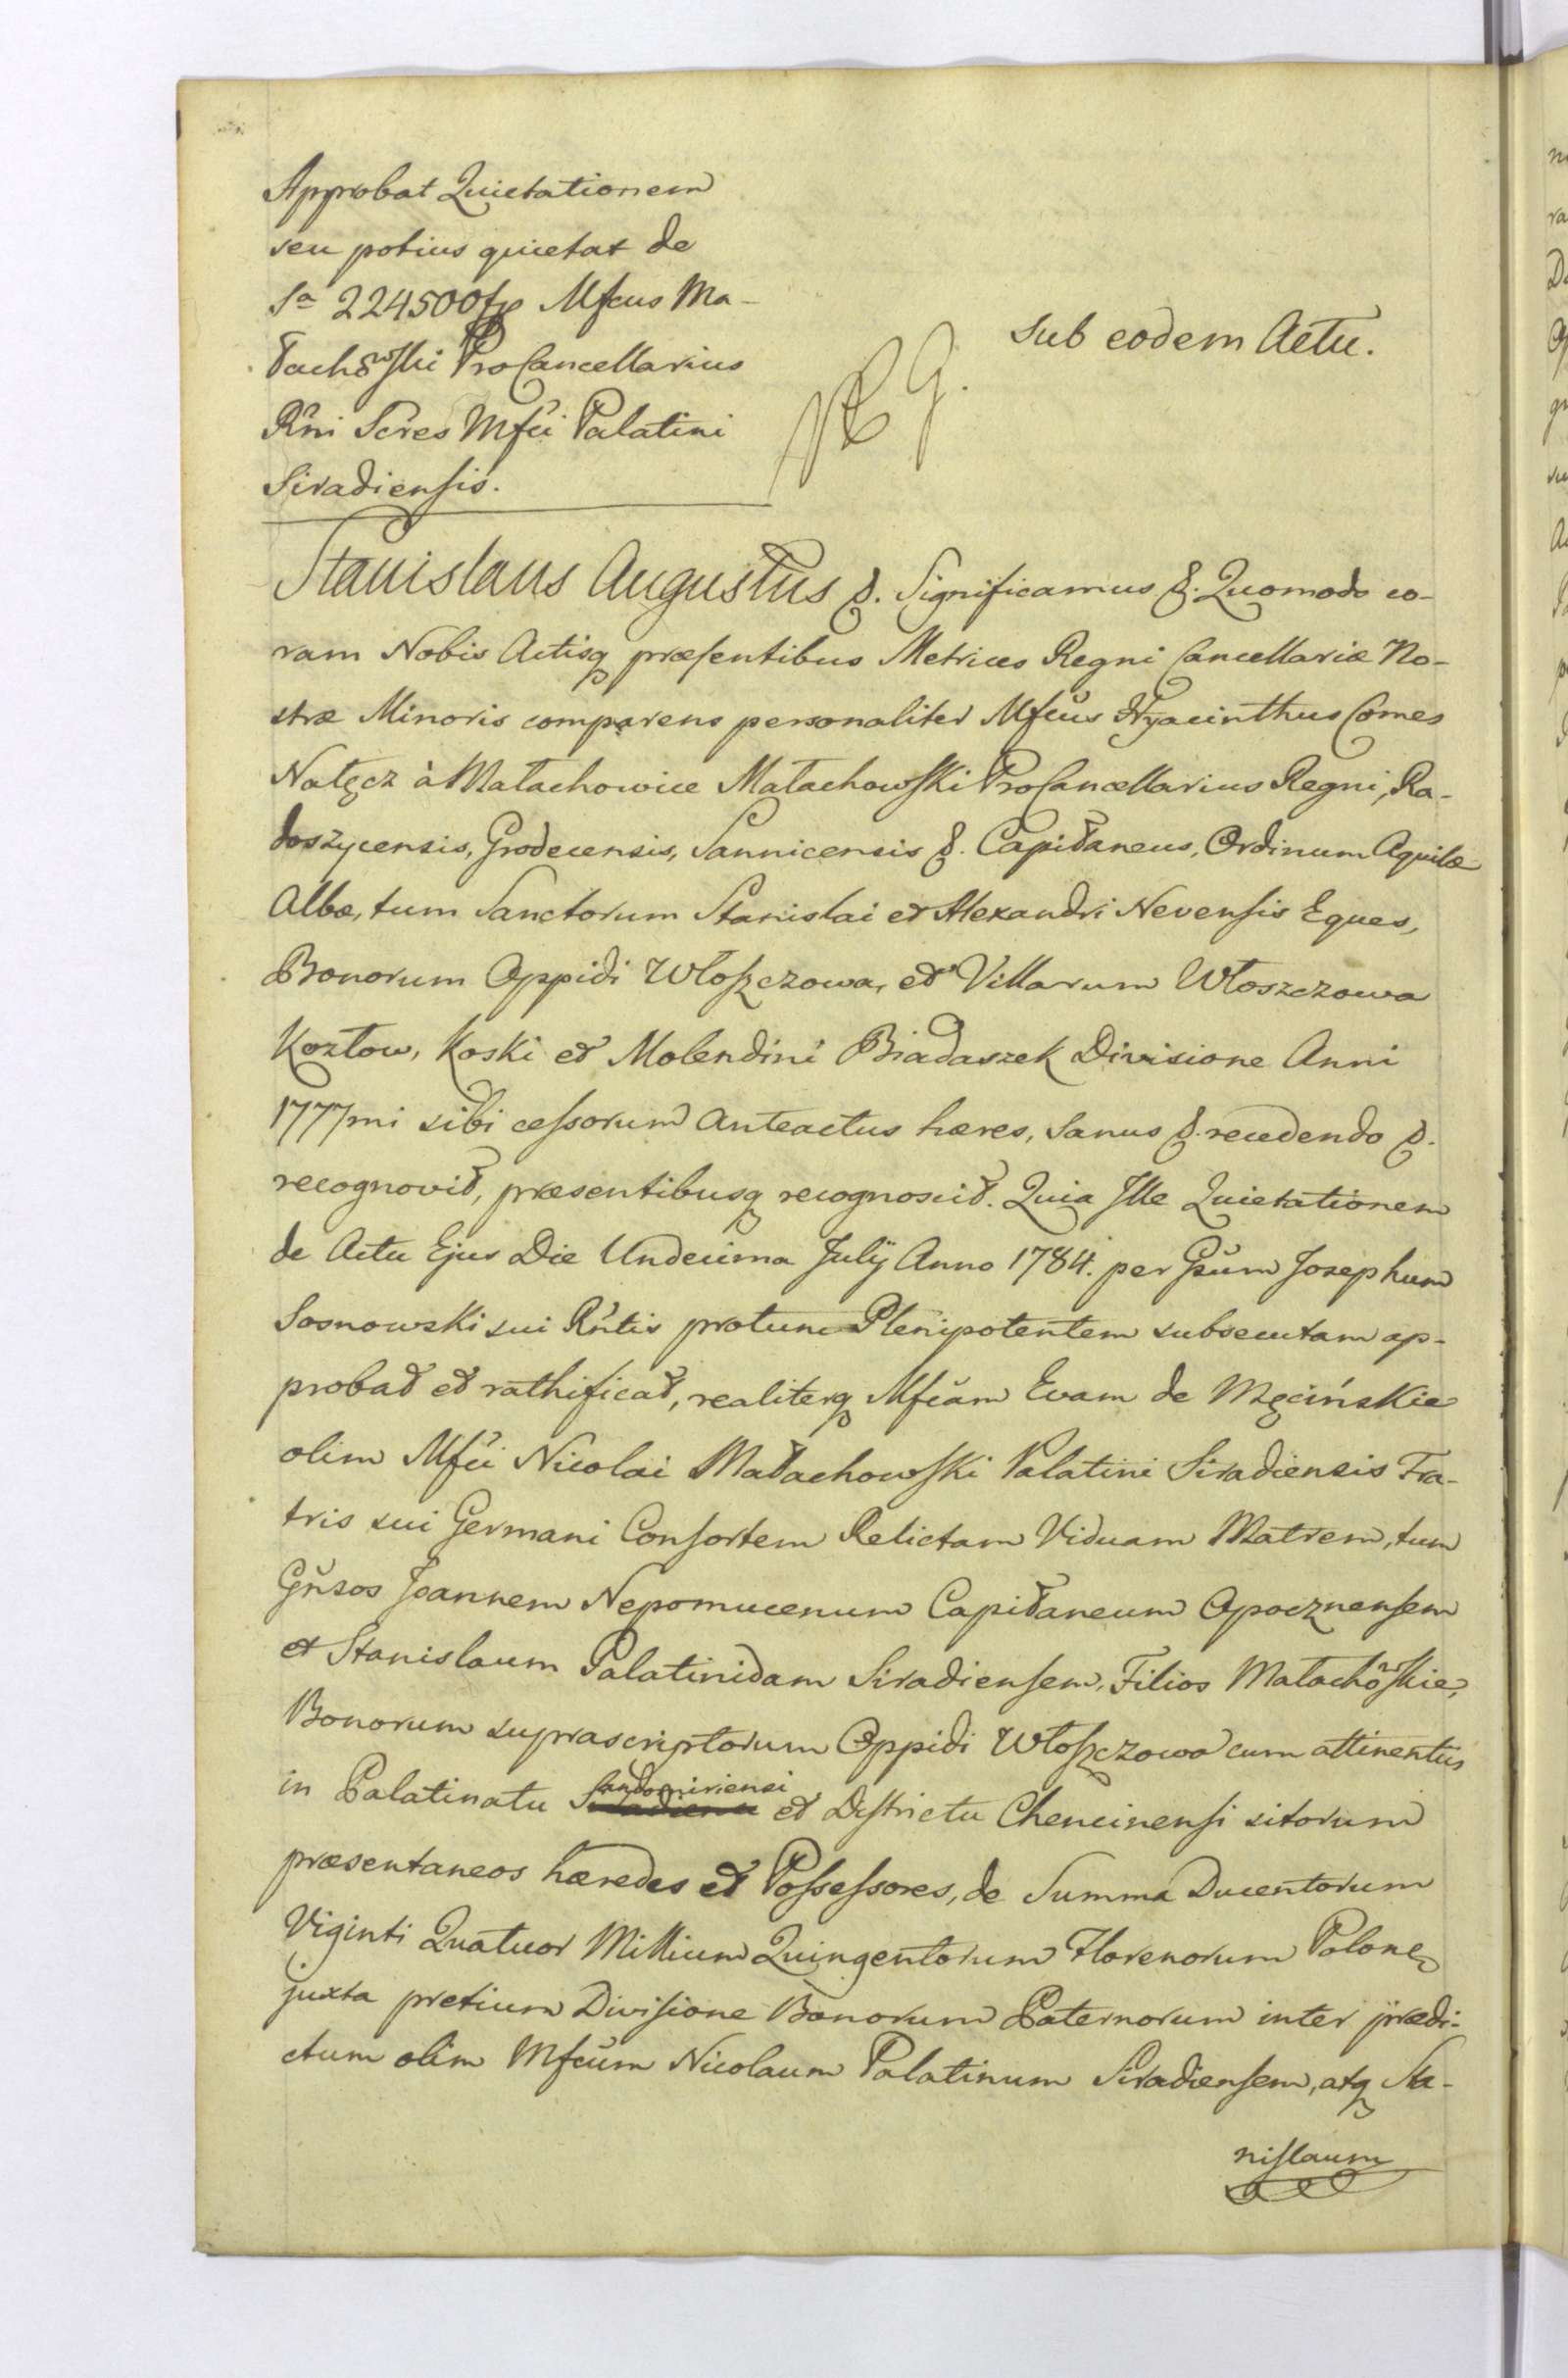 Approbat Quietationem
seu potius quietat de
Sa 224500 fp Mfcus Ma-
łachowski ProCancellarius
Rni Scres Mfci Palatini
Siradiensis.
Sub eodem Actu.
Stanislaus Augustus &. Significamus &. Quomodo co-
ram Nobis Actisq præsentibus Metrices Regni Cancellariæ No-
stræ Minoris comparens personaliter Mfcus Hyacinthus Comes
Nałęcz à Małachowice Małachowski ProCancellarius Regni, Ra-
doszycensis, Grodecensis, Sannicensis &. Capitaneus, Ordinum Aquilæ
Albæ, tum Sanctorum Stanislai et Alexandri Nevensis Eques,
Bonorum Oppidi Włoszczowa, et Villarum Włoszczowa
Kozłow, Koski et Molendini Biadaszek Divisione Anni
1777mi sibi cessorum anteactus hæres, sanus &. recedendo &.
recognovit, præsentibusq recognoscit. Quia Ille Quietationem
de Actu Ejus Die Undecima Julij Anno 1784. per Gsum Josephum
Sosnowski sui Rntis protunc Plenipotentem subsecutam ap-
probat et rathificat, realiterq Mfcam Evam de Męcińskie
olim Mfci Nicolai Małachowski Palatini Siradiensis Fra-
tris sui Germani Consortem Relictam Viduam Matrem, tum
Gnsos Joannem Nepomucenum Capitaneum Opocznensem
et Stanislaum Palatinidam Siradiensem, Filios Małachowskie,
Bonorum suprascriptorum Oppidi Włoszczowa cum attinentus
in Palatinatu Sandomiriensi et Districtu Chencinensi sitorum
præsentaneos hæredes et Possessores, de Summa Ducentorum
Viginti Quatuor Millium Quingentorum Florenorum Polone
juxta pretium Divisione Bonorum Paternorum inter prædi-
ctum olim Mfcum Nicolaum Palatinum Siradiensem, atq Sta-
nislaum